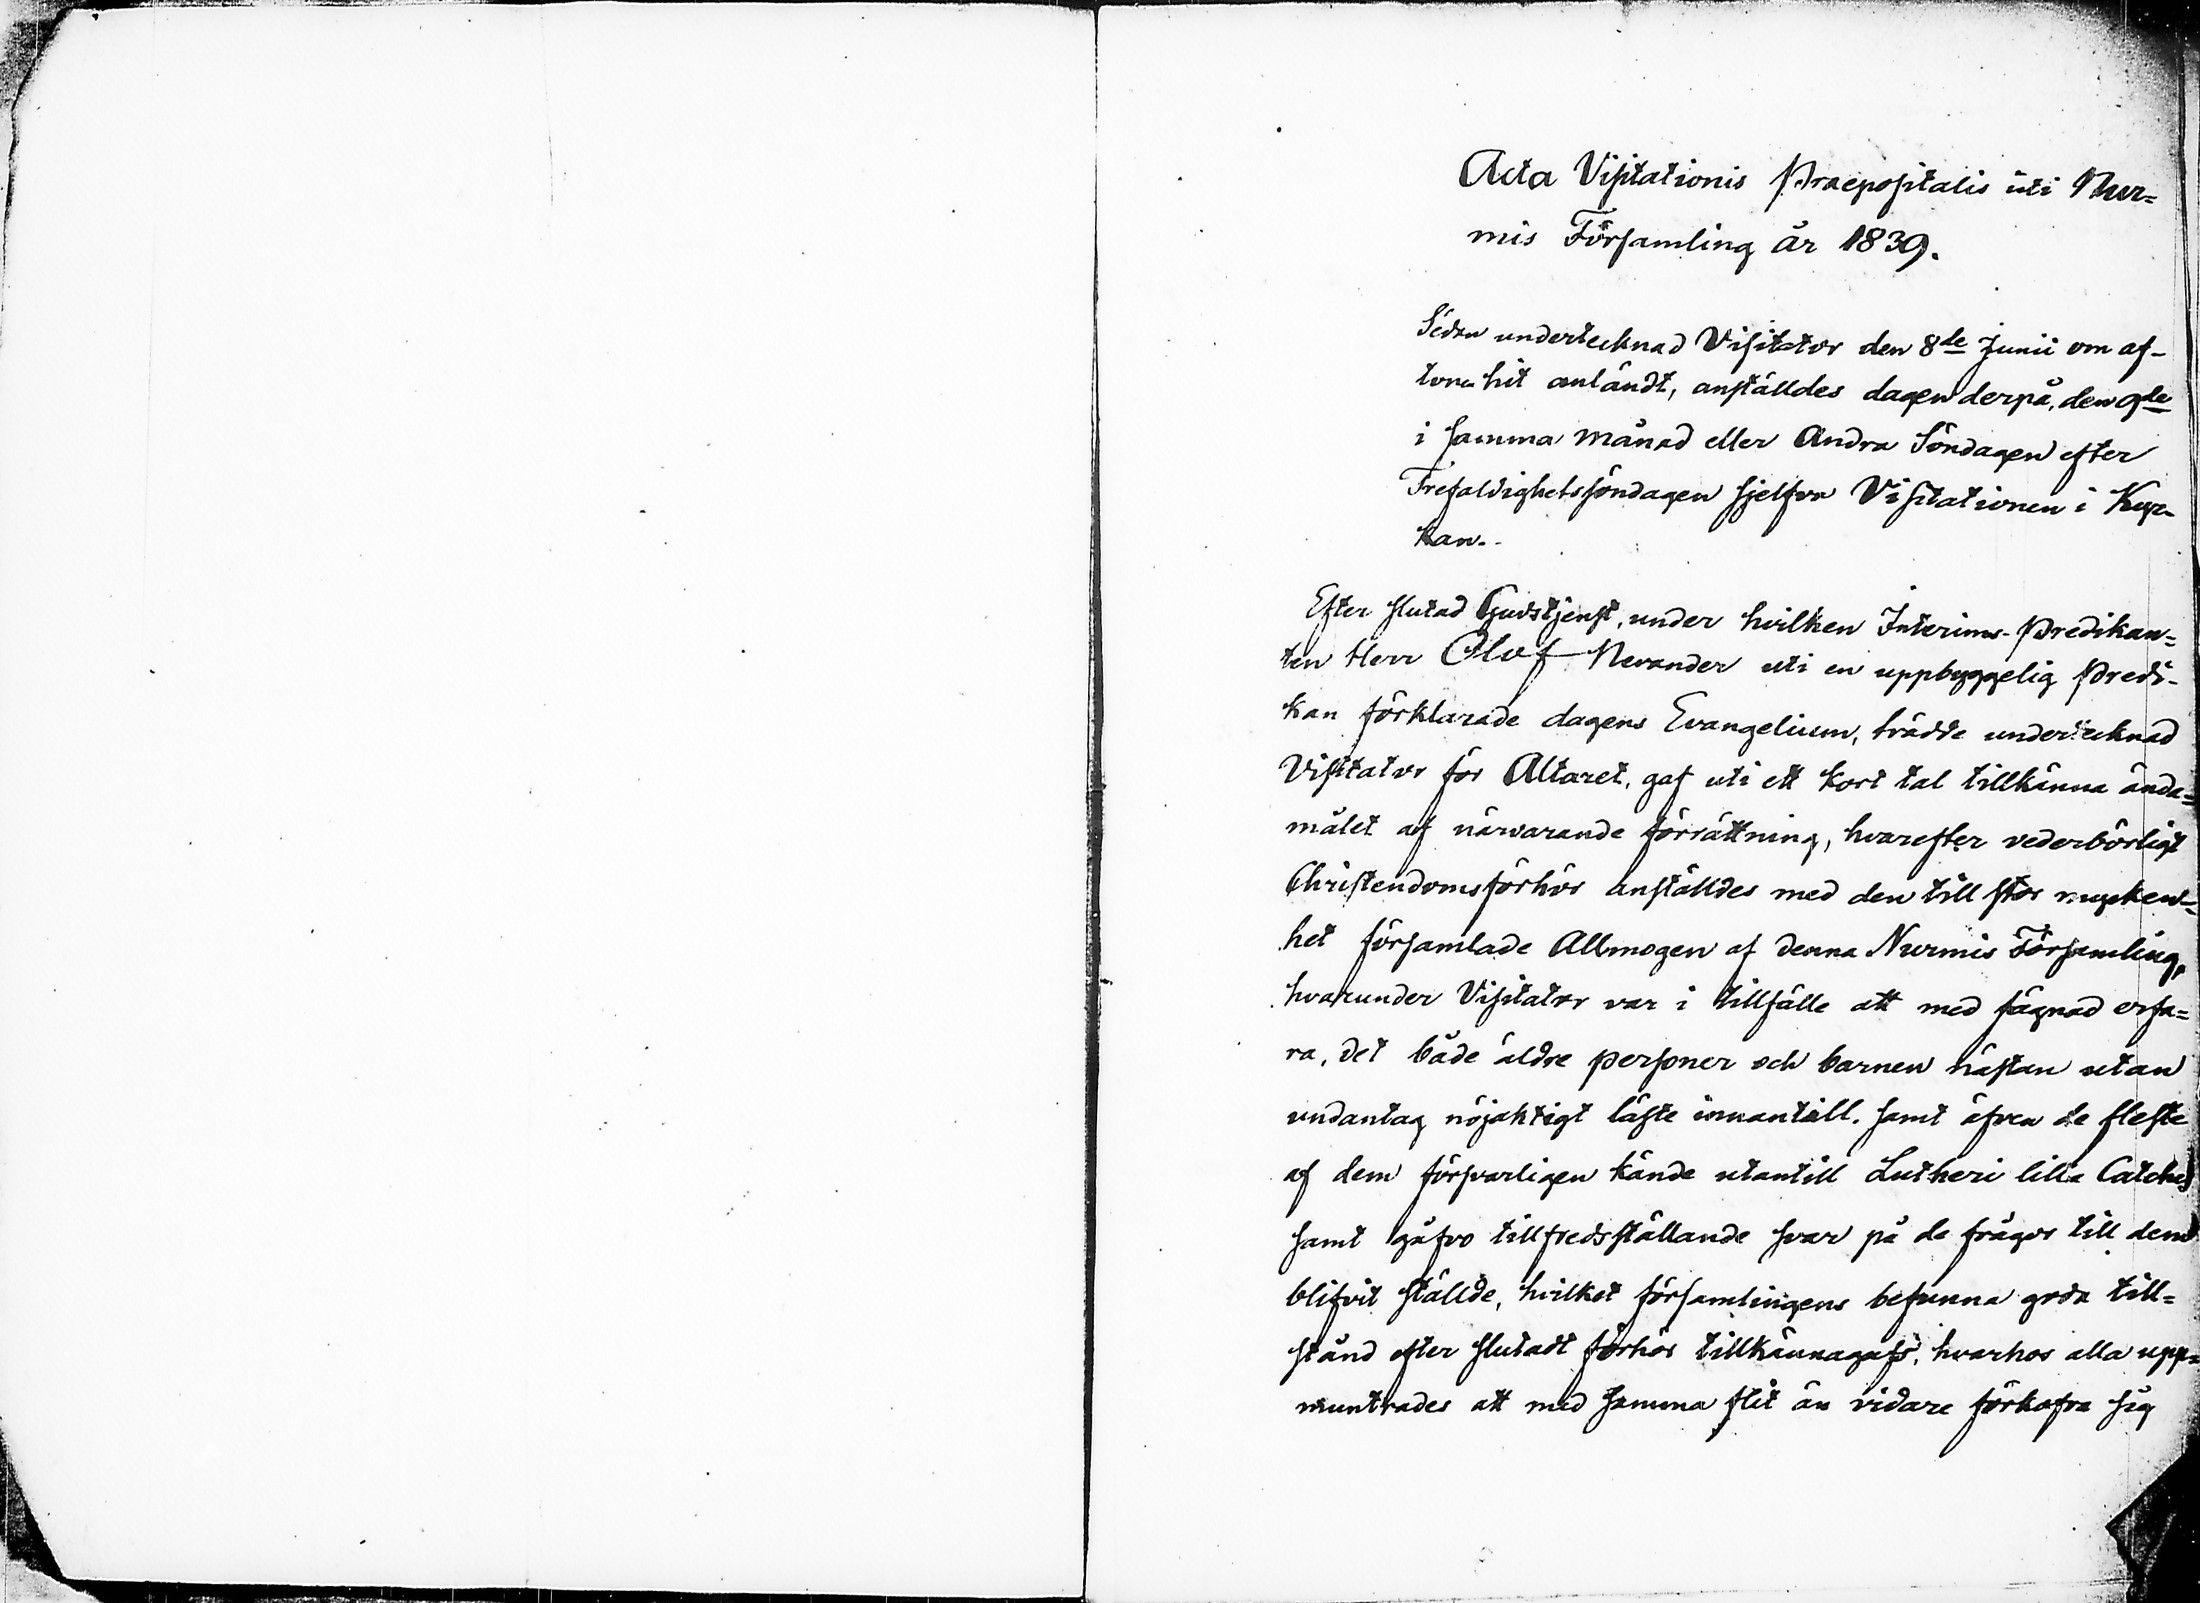 Acta Visitationis Praepositalis uti Nur=
mis Församling år 1839.
Sedan undertecknad Visitator den 8de Junii om af-
tonen hit anländt, anställdes dagen derpå, den 9de
i samma månad eller Andra Söndagen efter
Trefaldighetssöndagen sjelfva Visitationen i Kyr-
kan.
Efter slutad Gudstjenst, under hvilken Interims-Predikan=
ten Herr Olof Nevander uti en uppbyggelig Predi-
kan förklarade dagens Evangelium, trädde undertecknad
Visitator för Altaret, gaf uti ett kort tal tillkänna ända=
målet af närvarande förrättning, hvarefter vederbörligt
Christendomsförhör anställdes med den till stor mycken=
het församlade Allmogen af denna Nurmis Församling,
hvarunder Visitator var i tillfälle att med fägnad erfa=
ra, det både äldre personer och barnen nästan utan
undantag nöjaktigt läste innantill, samt äfven de fleste
af dem försvarligen kände utantill Lutheri lilla Catches
samt gåfvo tillfredsställande svar på de frågor till dem
blifvit ställde, hvilket församlingens befunna goda till=
stånd efter slutadt förhör tillkännagafs, hvarhos alla upp=
muntrades att med samma flit än vidare förkofra sig